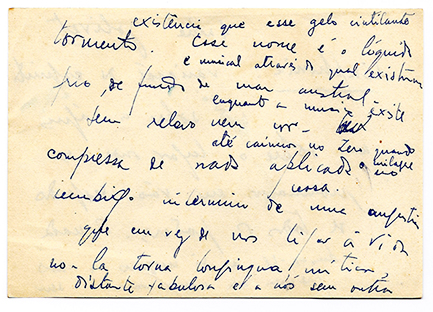 existência que esse gelo
tormento. Esse nome é o líquido
e musical através do qual existimos
frio de fundo de mar austral.
enquanto a musica existe
sem relevo nem
até cairmos no zero quando
compressa de nada aplicada o milagre
no
cessa.
umbigo. incenino de uma angustia
que em vez de nos ligar á vida
no-la torna longinqua mitica,
distante fabulosa e a nós sem outra